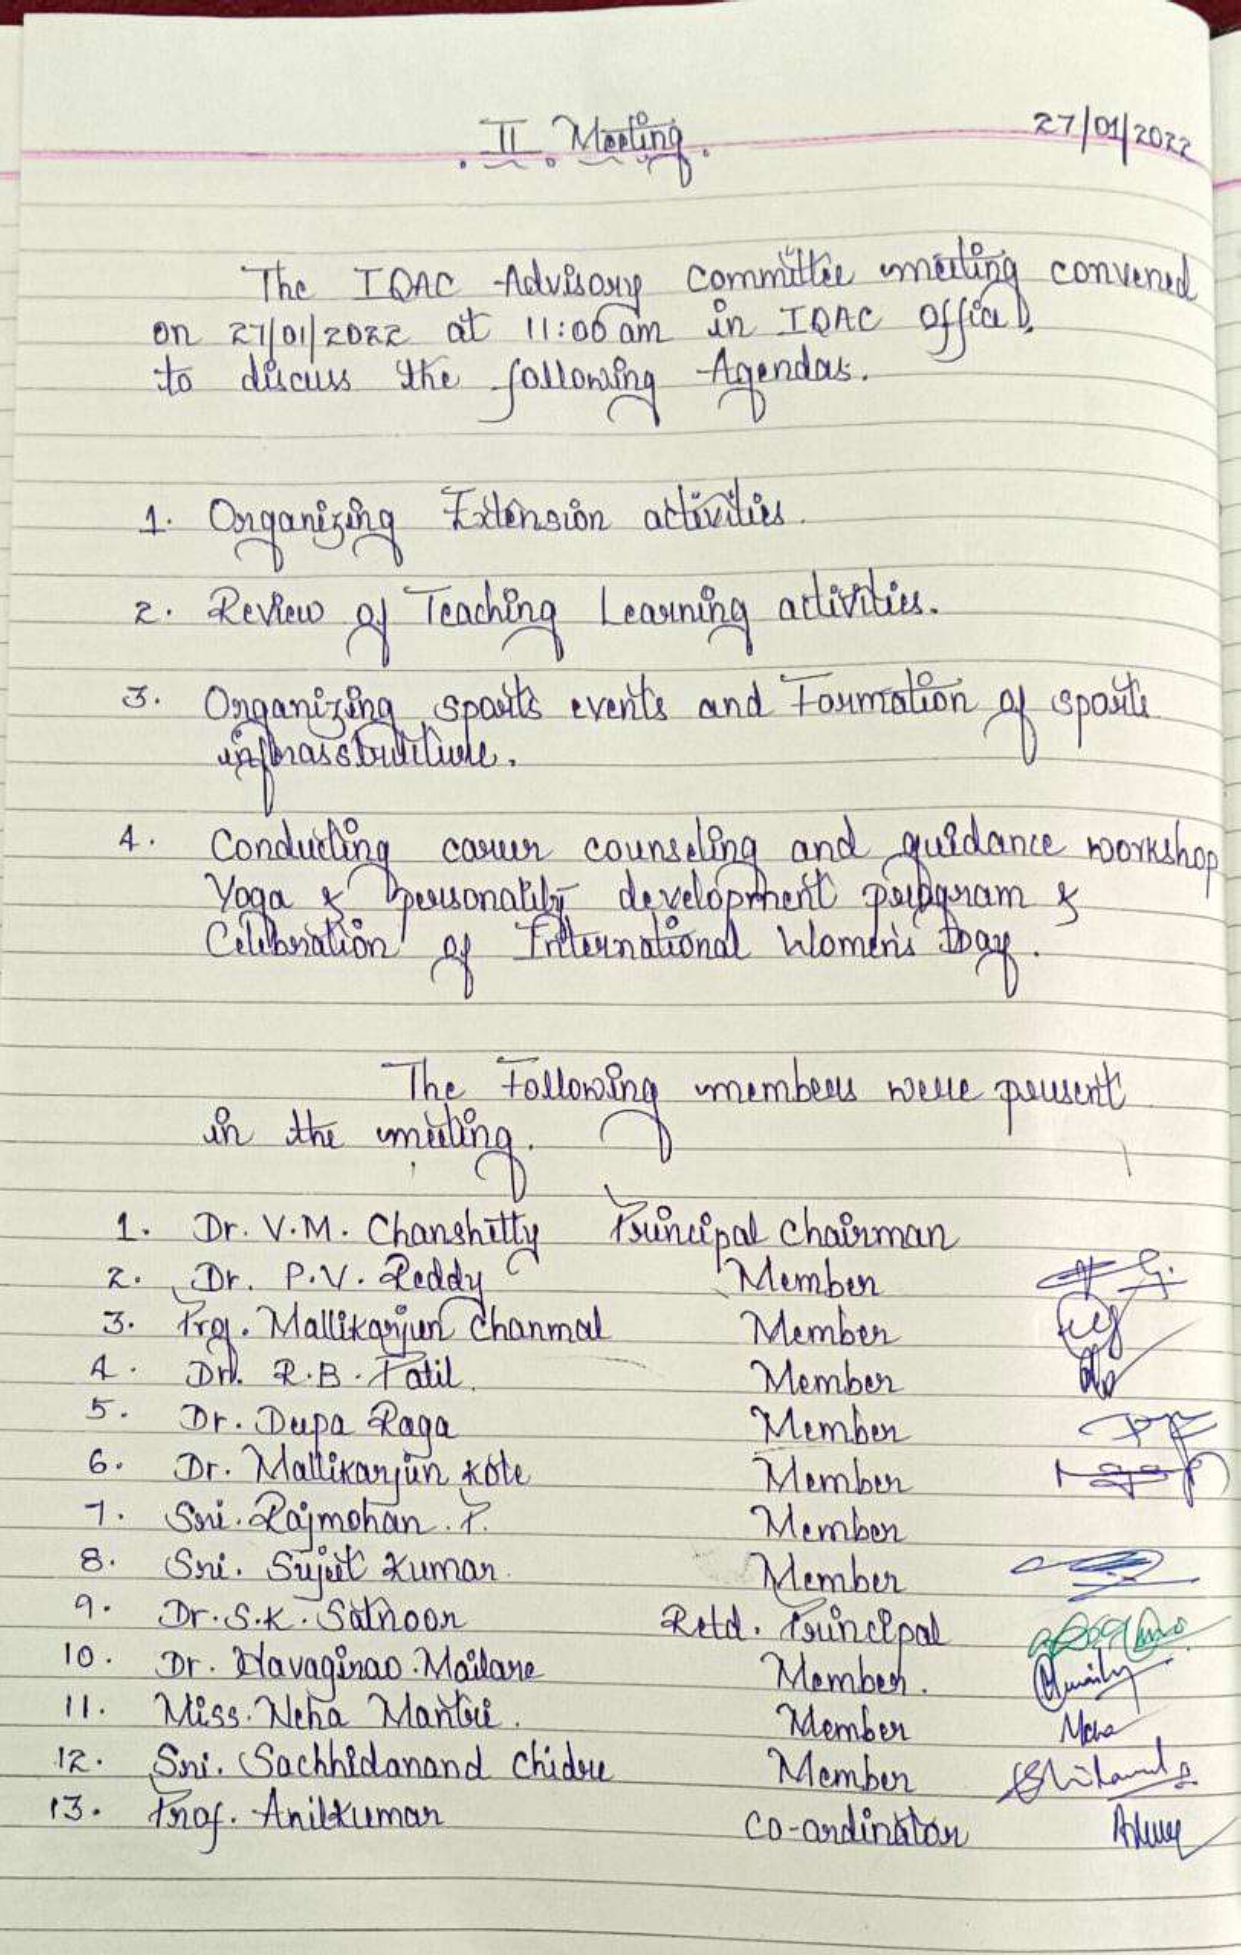 II. Meeting.
27/01/2022
The IQAC Advisory Committee meeting convened
on 27/01/2022 at 11:00 am in IQAC office
to discuss the following Agendas.
1. Organizing Extension activities.
2. Review of Teaching Learning activities.
3. Organizing sports events and Formation of sports
infrasstructure.
4. Conducting career counseling and guidance workshop
Yoga & personality development program &
Celebration of International Women's Day.
The Following members were present
in the meeting.
1. Dr. V.M. Chanshetty Principal Chairman
2. Dr. P.V. Reddy Member
3. Prof. Mallikarjun Chanmal Member
4. Dr. R.B. Patil Member
5. Dr. Dupa Raga Member
6. Dr. Mallikarjun Kote Member
7. Sri. Rajmohan. P. Member
8. Sri. Sujeet Kumar Member
9. Dr. S.K. Satnoor Retd. Principal
10. Dr. Navaginao. Mailare Member.
11. Miss. Neha Mantri. Member Neha
12. Sri. Sachhidanand Chidre Member
13. Prof. Anilkumar Co-ordinator